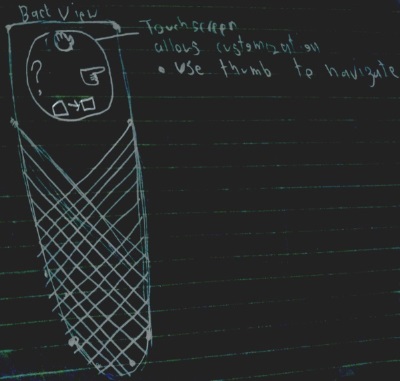 Back View
Touchscreen
allows customization
• Use thumb to navigate
?